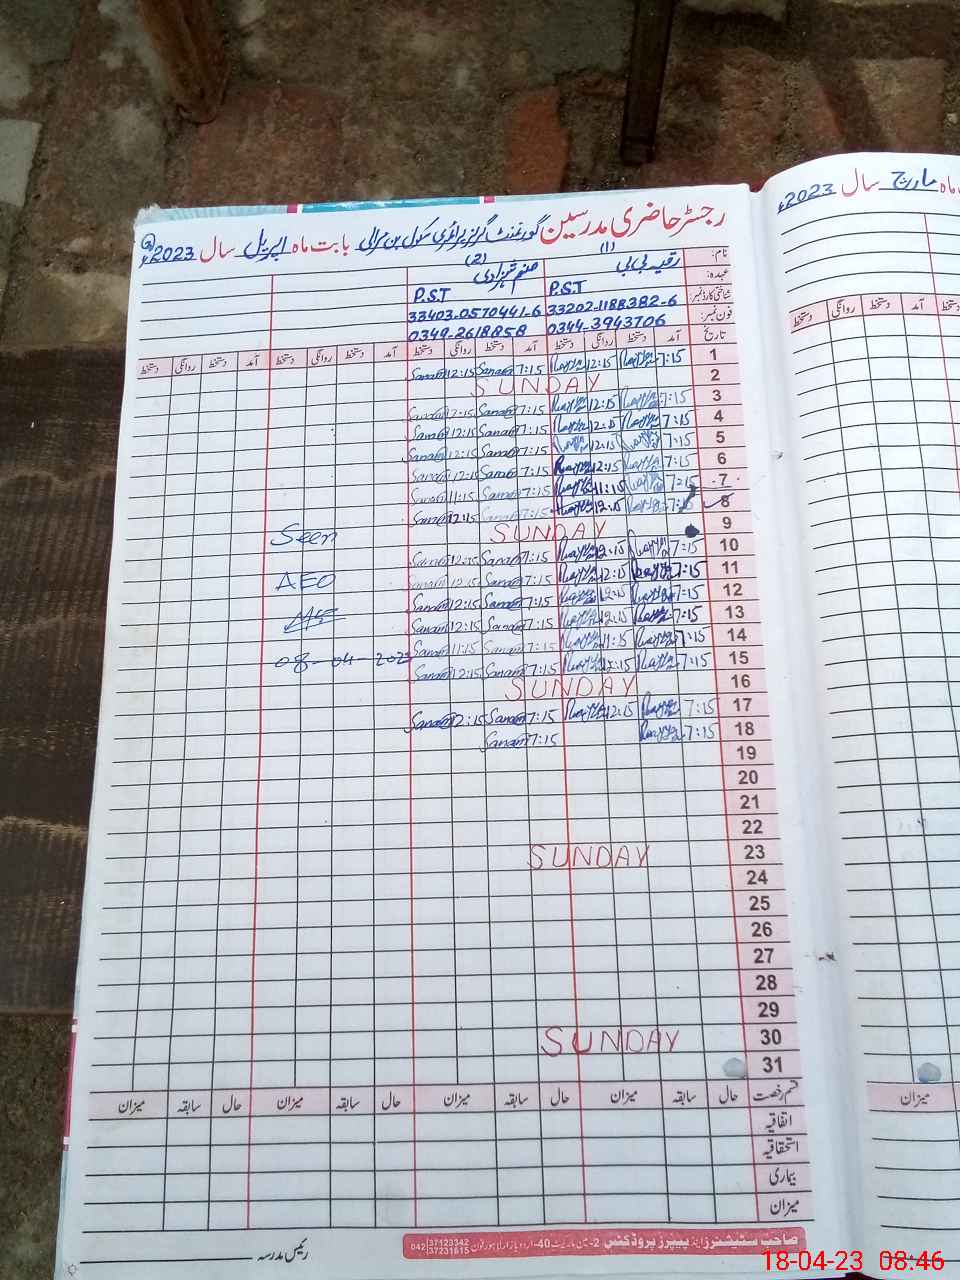 رجسٹر حاضری مدرسین گورنمنٹ گرلز پرائمری سکول بابت ماہ اپریل سال 2023ء
ماہ مارچ سال 2023ء
نام: (1) رقیہ بی بی (2) صنم شہزادی
عہدہ: P.S.T P.S.T
شناختی کارڈ نمبر: 33202-1188382-6 33403-0570441-6
فون نمبر: 0344-3943706 0349-2618858
تاریخ آمد دستخط روانگی دستخط آمد دستخط روانگی دستخط آمد دستخط روانگی دستخط آمد دستخط روانگی دستخط
1 7:15 12:15 7:15 Sanam 12:15 Sanam
2 SUNDAY
3 7:15 12:15 7:15 Sanam 12:15 Sanam
4 7:15 12:15 7:15 Sanam 12:15 Sanam
5 7:15 12:15 7:15 Sanam 12:15 Sanam
6 7:15 12:15 7:15 Sanam 12:15 Sanam
7 7:15 11:15 7:15 Sanam 11:15 Sanam
8 7:15 12:15 7:15 Sanam 12:15 Sanam
9 SUNDAY
Seen
10 7:15 12:15 7:15 Sanam 12:15 Sanam
11 7:15 12:15 7:15 Sanam 12:15 Sanam
AEO
12 7:15 12:15 7:15 Sanam 12:15 Sanam
13 7:15 12:15 7:15 Sanam 12:15 Sanam
14 7:15 11:15 7:15 Sanam 11:15 Sanam
15 7:15 12:15 7:15 Sanam 12:15 Sanam
08-04-2023
16 SUNDAY
17 7:15 12:15 7:15 Sanam 12:15 Sanam
18 7:15 7:15 Sanam
19
20
21
22
23 SUNDAY
24
25
26
27
28
29
30 SUNDAY
31
قسم رخصت حال سابقہ میزان حال سابقہ میزان حال سابقہ میزان حال سابقہ میزان
اتفاقیہ
استحقاقیہ
بیماری
میزان
صاحب سٹیشنرز اینڈ پیپرز پروڈکٹس 042 37123342 37231615
رئیس مدرسہ
دستخط روانگی دستخط آمد
میزان
18-04-23 08:46